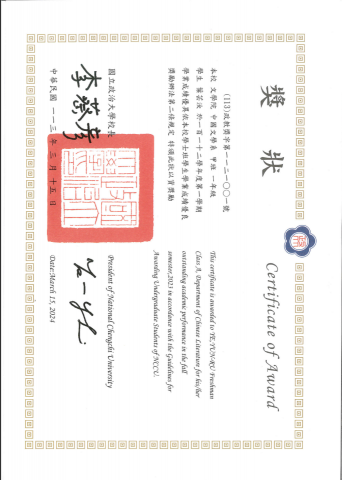 獎狀
Certificate of Award
(113)政教獎字第一一二一〇〇一號
本校 文學院 中國文學系 甲班 一年級
學生 葉芸汝 於一百一十二學年度第一學期
學業成績優異依本校學士班學生學業成績優良
獎勵辦法第二條規定 特頒此狀以資獎勵
This certificate is awarded to YE,YUN-RU Freshman
Class A, Department of Chinese Literature for his/her
outstanding academic performance in the fall
semester,2023 in accordance with the Guidelines for
Awarding Undergraduate Students of NCCU.
國立政治大學校長
李蔡彥
President of National Chengchi University
中華民國 一一三 年 三 月 十五 日
Date:March 15, 2024